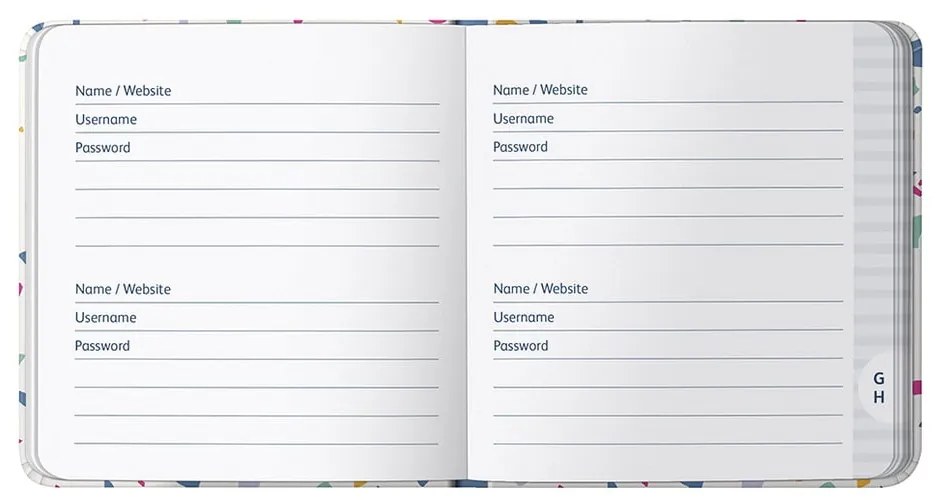 Name / Website
Username
Password
Name / Website
Username
Password
Name / Website
Username
Password
Name / Website
Username
Password
G
H